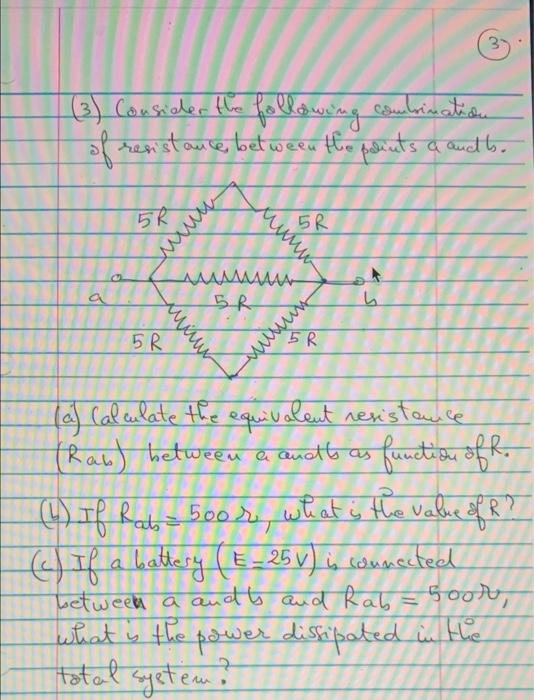 (3)
(3) Consider the following combination
of resistance, between the points a and b.
5R 5R
a 5R b
5R 5R
(a) Calculate the equivalent resistance
(Rab) between a and b as function of R.
(b) If Rab = 500 Ω, what is the value of R?
(c) If a battery (E = 25V) is connected
between a and b and Rab = 500Ω,
what is the power dissipated in the
total system?